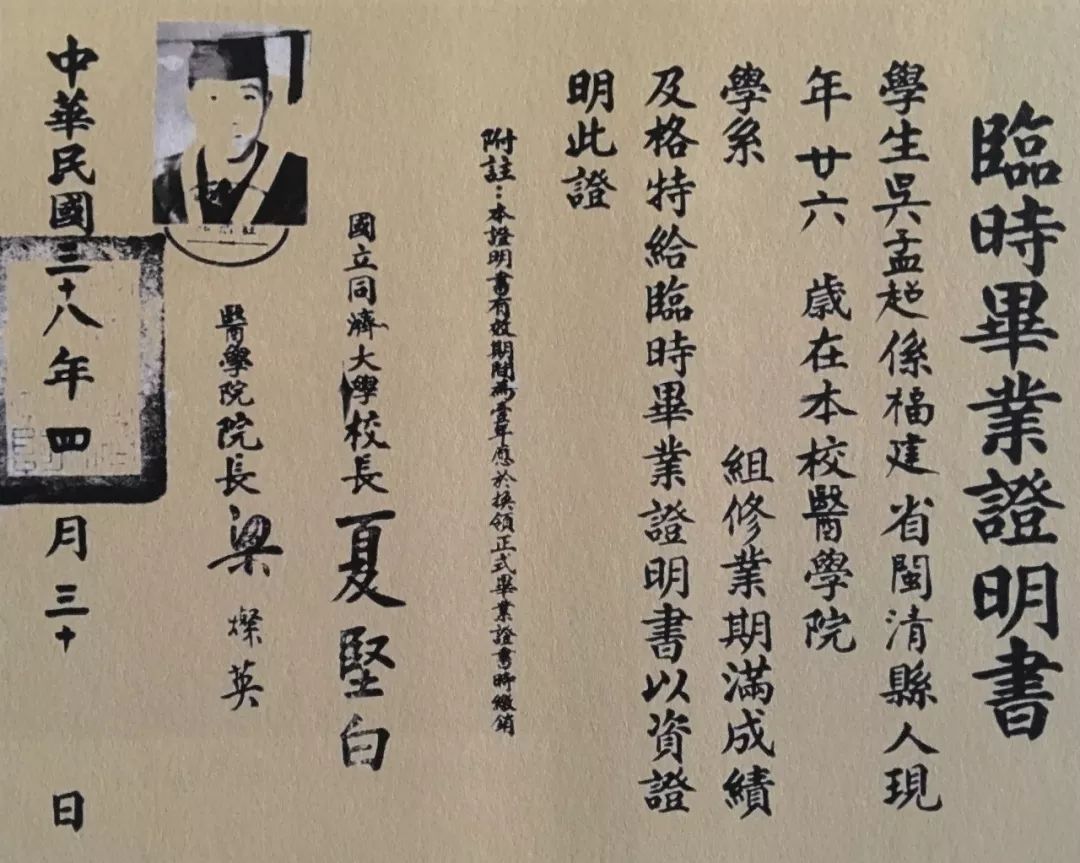 臨時畢業證明書
學生吳孟超係福建省閩清縣人現
年廿六 歲在本校醫學院
學系 組修業期滿成績
及格特給臨時畢業證明書以資證
明此證
附註：本證明書有效期間為壹年應於換領正式畢業證書時繳銷
國立同濟大學校長夏堅白
醫學院院長梁燦英
中華民國三十八年四月三十 日